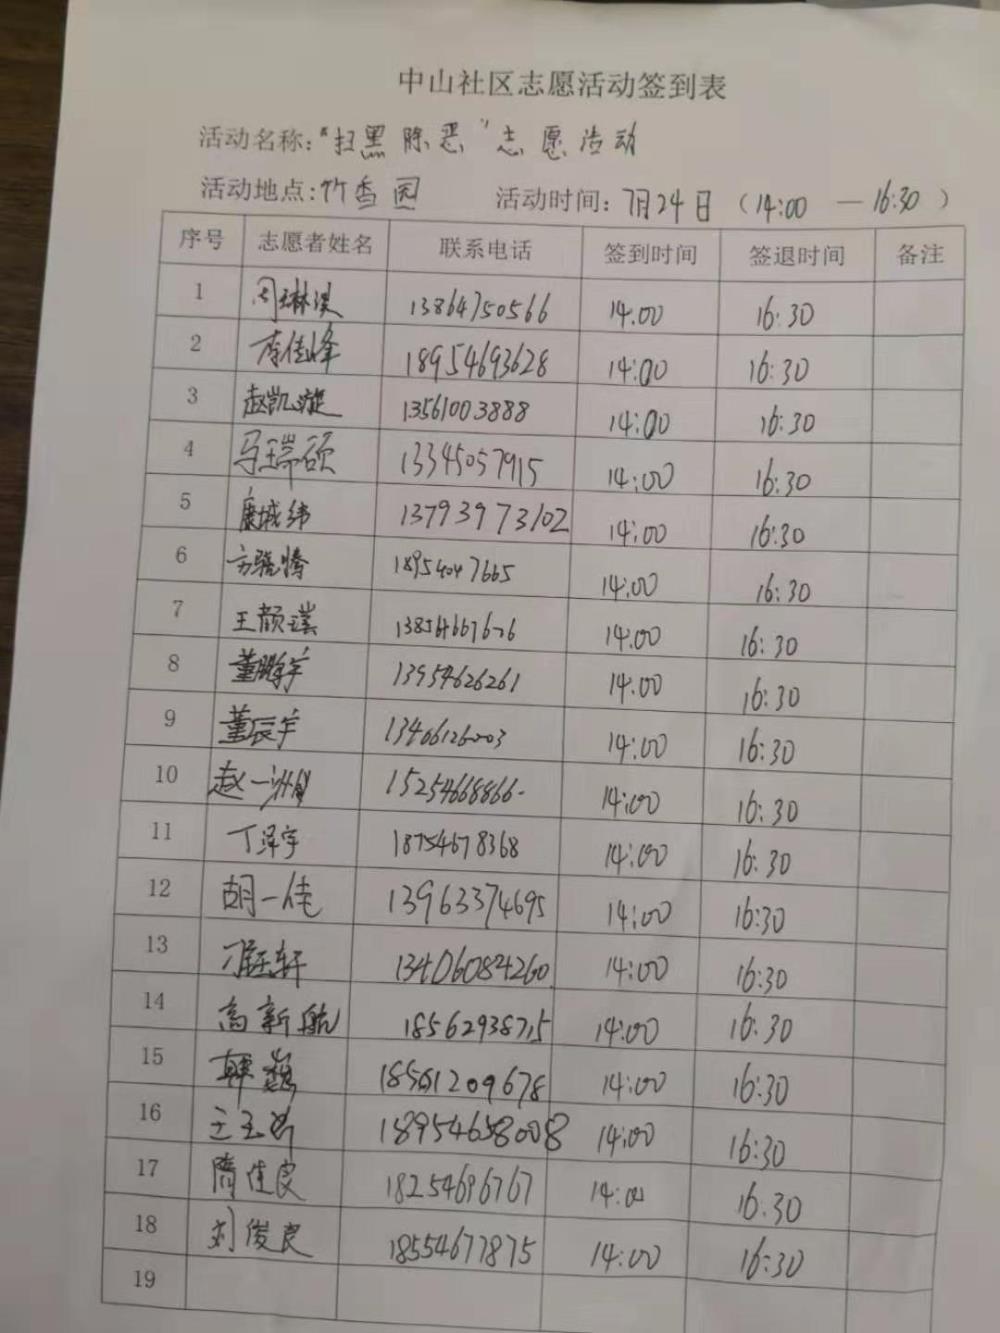 中山社区志愿活动签到表
活动名称："扫黑除恶"志愿活动
活动地点:竹香园 活动时间：7月24日（14:00 —16:30）
序号 志愿者姓名 联系电话 签到时间 签退时间 备注
1 周琳淇 13864750566 14:00 16:30
2 李佳峰 18954693628 14:00 16:30
3 赵凯漩 13561003888 14:00 16:30
4 马瑞硕 13345057915 14:00 16:30
5 康城纬 13793973102 14:00 16:30
6 方骁腾 18954047665 14:00 16:30
7 王颜璞 14:00 16:30
8 董鹏宇 13954626261 14:00 16:30
9 董辰宇 13466126003 14:00 16:30
10 赵一 15254668866 14:00 16:30
11 丁泽宇 18754678368 14:00 16:30
12 胡一佳 13963374695 14:00 16:30
13 13406084260 14:00 16:30
14 高新航 18562938715 14:00 16:30
15 韩 18561209678 14:00 16:30
16 18954658008 14:00 16:30
17 隋佳良 18254696767 14:00 16:30
18 刘俊良 18554677875 14:00 16:30
19